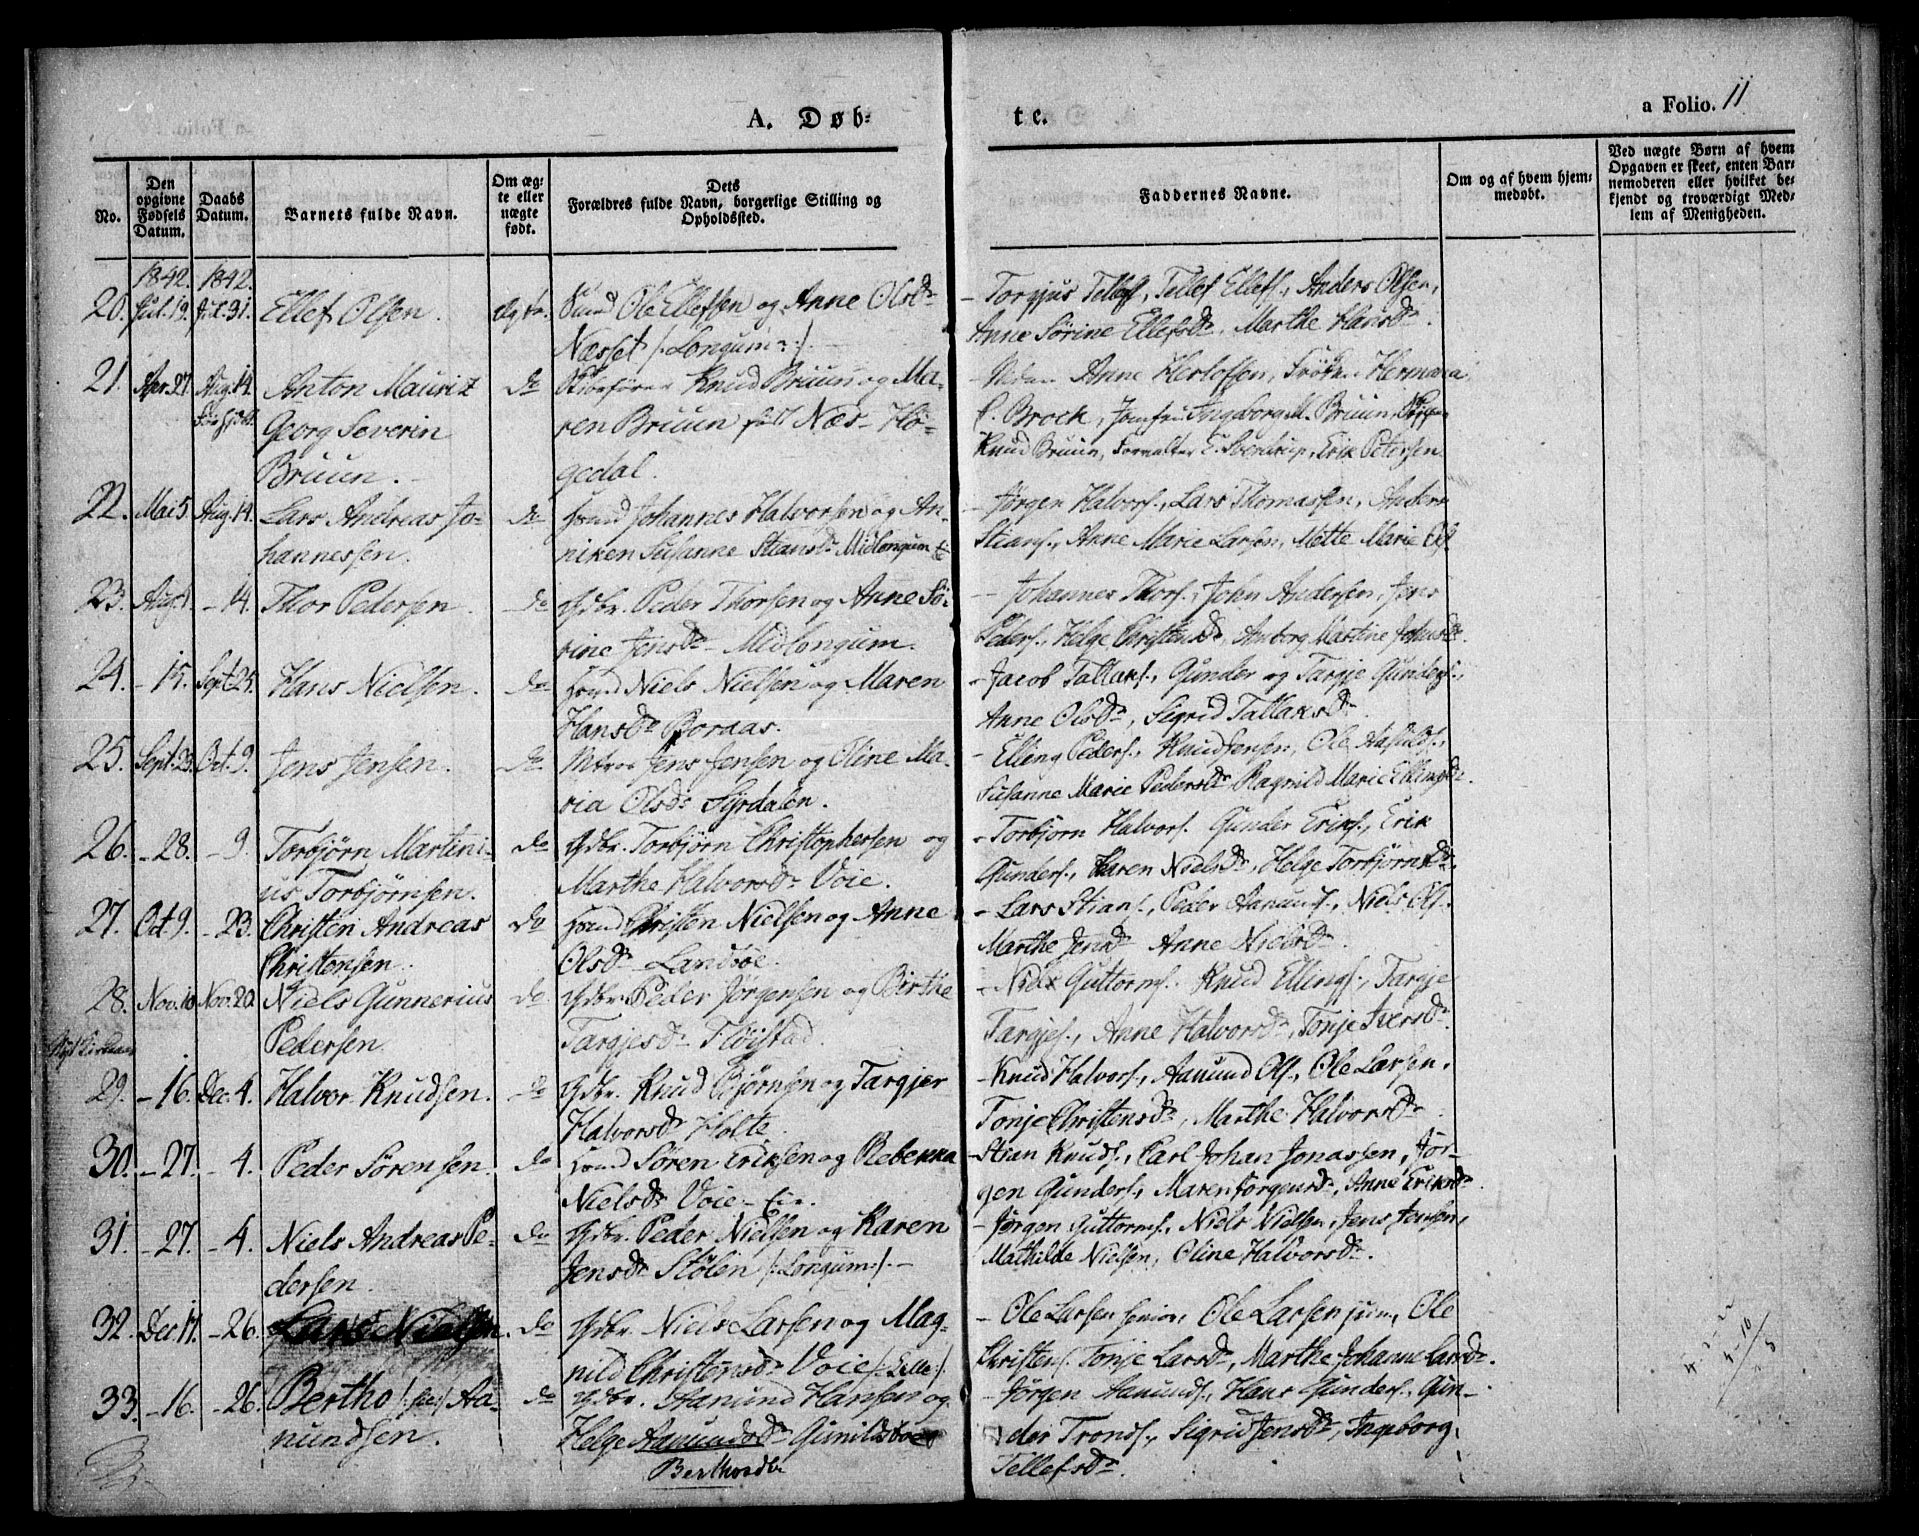 A. Døb-
te.
a Folio. 11
No.
Den opgivne Fødsels Datum.
Daabs Datum.
Barnets fulde Navn.
Om ægte eller uægte født.
Dets Forældres fulde Navn, borgerlige Stilling og Opholdssted.
Faddernes Navne.
Om og af hvem hjemmedøbt.
Ved uægte Børn af hvem Opgaven er skeet, enten Barnemoderen eller hvilket bekjendt og troværdigt Medlem af Menigheden.
1842. 1842.
20. Jul. 19. Jul. 31. Ellef Olsen. Ægte. Ole Ellefsen og Anne Olsdr
Næsset /:Longum:/.
- Torgjus Tellefs., Tellef Ellefs., Anders Olsen,
Anne Sørine Ellefsdr, Marthe Hansdr.
21. Apr. 27. Aug. 14. Anton Mauritz do Knud Bruun og Ma-
Georg Severin ren Bruun født Næs - Hø-
Bruun. gedal.
- Anne Herlofsen, Frøken Hermana
C. Brock, Jomfru Ingeborg M. Bruun,
Knud Bruun, Forvalter E. Sverdrup, Erik Petersen
22. Mai 5. Aug. 14. Lars Andreas Jo- do Johannes Halvorsen og An-
hannessen. niken Susanne Stiansdr Midlongum
- Jørgen Halvors., Lars Thomassen, Anders
Stians., Anne Marie Larsen, Mette Marie Ols.
23. Aug. 1. - 14. Thor Pedersen. do Gdbr. Peder Thorsen og Anne Sø-
rine Jensdr Midlongum.
- Johannes Thors., John Andersen, Jens
Peders., Helge Christensdr, Anborg Martine Johnsdr
24. - 15. Sept. 25. Hans Nielsen. do Niels Nielsen og Maren
Hansdr Boraas.
- Jacob Tallaks., Gunder og Targje Gunders.,
Anne Olsdr, Sigrid Tallaksdr.
25. Sept. 23. Oct. 9. Jens Jensen. do Jens Jensen og Oline Ma-
ria Olsdr Syrdalen.
- Elling Peders., Knud Jensen, Ole
Susanne Marie Pedersdr Ragnild Marie Ellingsdr.
26. - 28. - 9. Torbjørn Martini- do Gdbr. Torbjørn Christophersen og
us Torbjørnsen. Marthe Halvorsdr Voie.
- Torbjørn Halvors. Gunder Eriks., Erik
Gunders., Karen Nielsdr, Helge Torbjørnsdr.
27. Oct 9. - 23. Christen Andreas do Christen Nielsen og Anne
Christensen. Olsdr
- Lars Stians., Peder Aanunds., Niels Ols.
Marthe Jensdr Anne Nielsdr.
28. Nov. 10 Nov. 20. Niels Gunnerius do Gdbr. Peder Jørgensen og Birthe
Pedersen. Targjesdr Fløistad.
- Niels Guttorms. Knud Ellings., Targje
Targjes., Anne Halvorsdr, Tonje Iversdr.
29. - 16. Dec. 4. Halvor Knudsen. do Gdbr. Knud Bjørnsen og Targjer
Halvorsdr Holte.
- Knud Halvors., Aanund Ols., Ole Larsen.
Tonje Christensdr, Marthe Halvorsdr.
30. - 27. - 4. Peder Sørensen. do Søren Eriksen og Rebekka
Nielsdr Voie
Stian Knuds., Carl Johan Jonassen, Jør-
gen Gunders., Maren Jørgensdr, Anne Eriksdr
31. - 27. - 4. Niels Andreas Pe- do Gdbr. Peder Nielsen og Karen
dersen. Jensdr Stølen /:Longum:/.
- Jørgen Guttorms., Niels Nielsen, Jens Jensen,
Mathilde Nielsen, Oline Halvorsdr.
32. Dec 17. - 26. Lars Nielsen. do Gdbr. Niels Larsen og Mag-
nild Christensdr Voie /:Lille:/.
- Ole Larsen senior, Ole Larsen jun., Ole
Christens. Tonje Larsdr, Marthe Johanne Larsdr.
33. - 16. - 26. Bertho Aa- do Gdbr. Aanund Hansen og
nundsen. Helge Aanundsdr Gunildsboe
Berthosdtr
- Jørgen Aanunds., Hans Gunders., Gun-
der Tronds., Sigrid Jensdr, Ingeborg
Tellefsdr.